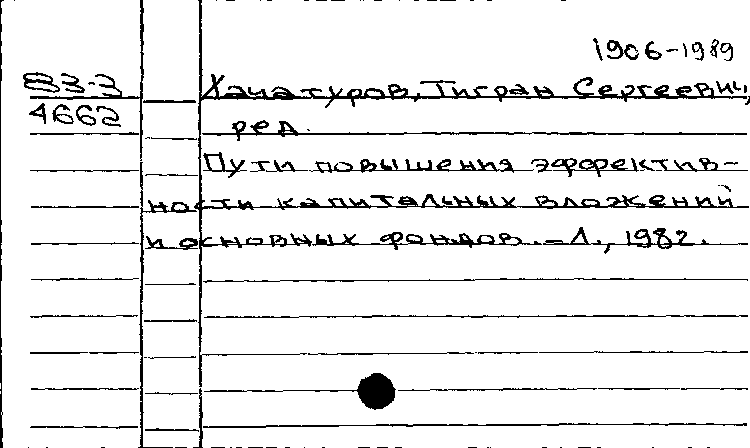 1906-1989
83-3
4662
Хачатуров, Тигран Сергеевич,
ред.
Пути повышения эффектив-
ности капитальных вложений
и основных фондов. - Л., 1982.